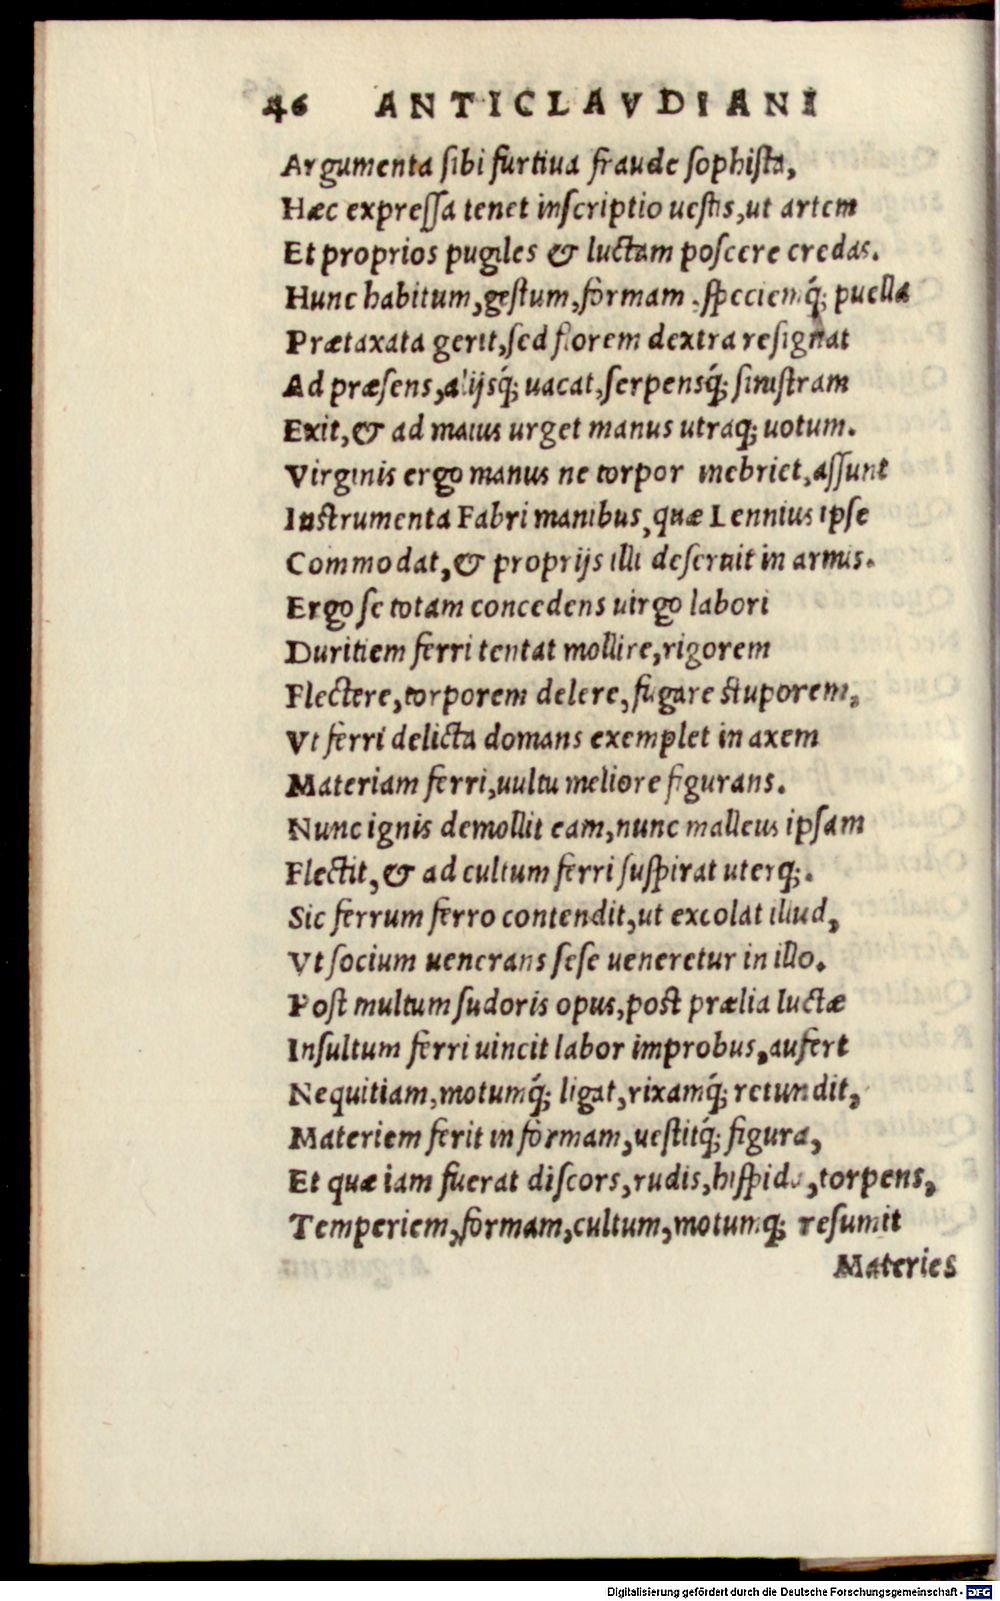 46 ANTICLAVDIANI
Argumenta sibi furtiua fraude sophista,
Hæc expressa tenet inscriptio uestis, ut artem
Et proprios pugiles & luctam poscere credas.
Hunc habitum, gestum, formam, speciemq́; puella
Prætaxata gerit, sed florem dextra resignat
Ad præsens, alijsq́; uacat, serpensq́; sinistram
Exit, & ad maius urget manus utraq; uotum.
Virginis ergo manus ne torpor inebriet, assunt
Instrumenta Fabri manibus, quæ Lennius ipse
Commodat, & proprijs illi deseruit in armis.
Ergo se totam concedens uirgo labori
Duritiem ferri tentat mollire, rigorem
Flectere, torporem delere, fugare stuporem,
Vt ferri delicta domans exemplet in axem
Materiam ferri, uultu meliore figurans.
Nunc ignis demollit eam, nunc malleus ipsam
Flectit, & ad cultum ferri suspirat uterq;.
Sic ferrum ferro contendit, ut excolat illud,
Vt socium uenerans sese ueneretur in illo.
Post multum sudoris opus, post prælia luctæ
Insultum ferri uincit labor improbus, aufert
Nequitiam, motumq́; ligat, rixamq́; retundit,
Materiem ferit in formam, uestitq́; figura,
Et quæ iam fuerat discors, rudis, hispida, torpens,
Temperiem, formam, cultum, motumq; resumit
Materies
Digitalisierung gefördert durch die Deutsche Forschungsgemeinschaft - DFG